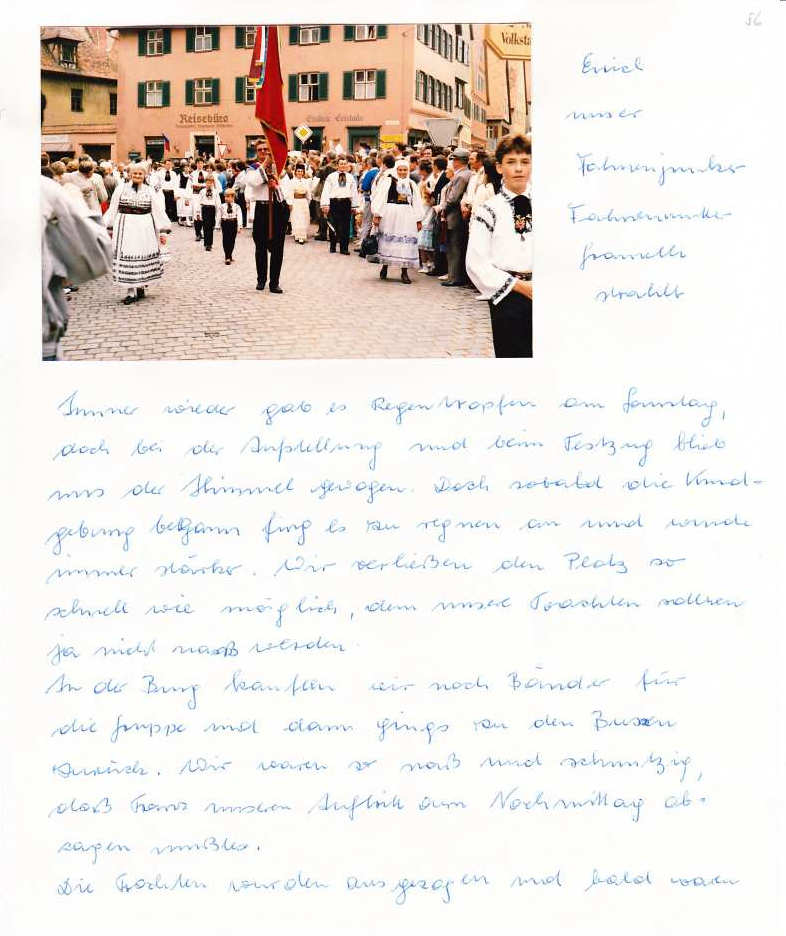 56
Volksta
Reisebüro
Erich
unser
Fahnenjunker
Fahnenunker
strahlt
Immer wieder gab es Regentropfen am Sonntag,
doch bei der Aufstellung und beim Festzug blieb
uns der Himmel gewogen. Doch sobald die Kund-
gebung begann fing es zu regnen an und wurde
immer stärker. Wir verließen den Platz so
schnell wie möglich, denn unsere Trachten sollten
ja nicht naß werden.
In der Burg kauften wir noch Bänder für
die Gruppe und dann gings zu den Bussen
zurück. Wir waren so naß und schmutzig,
daß Franz unseren Auftritt am Nachmittag ab-
sagen mußte.
Die Trachten wurden ausgezogen und bald waren